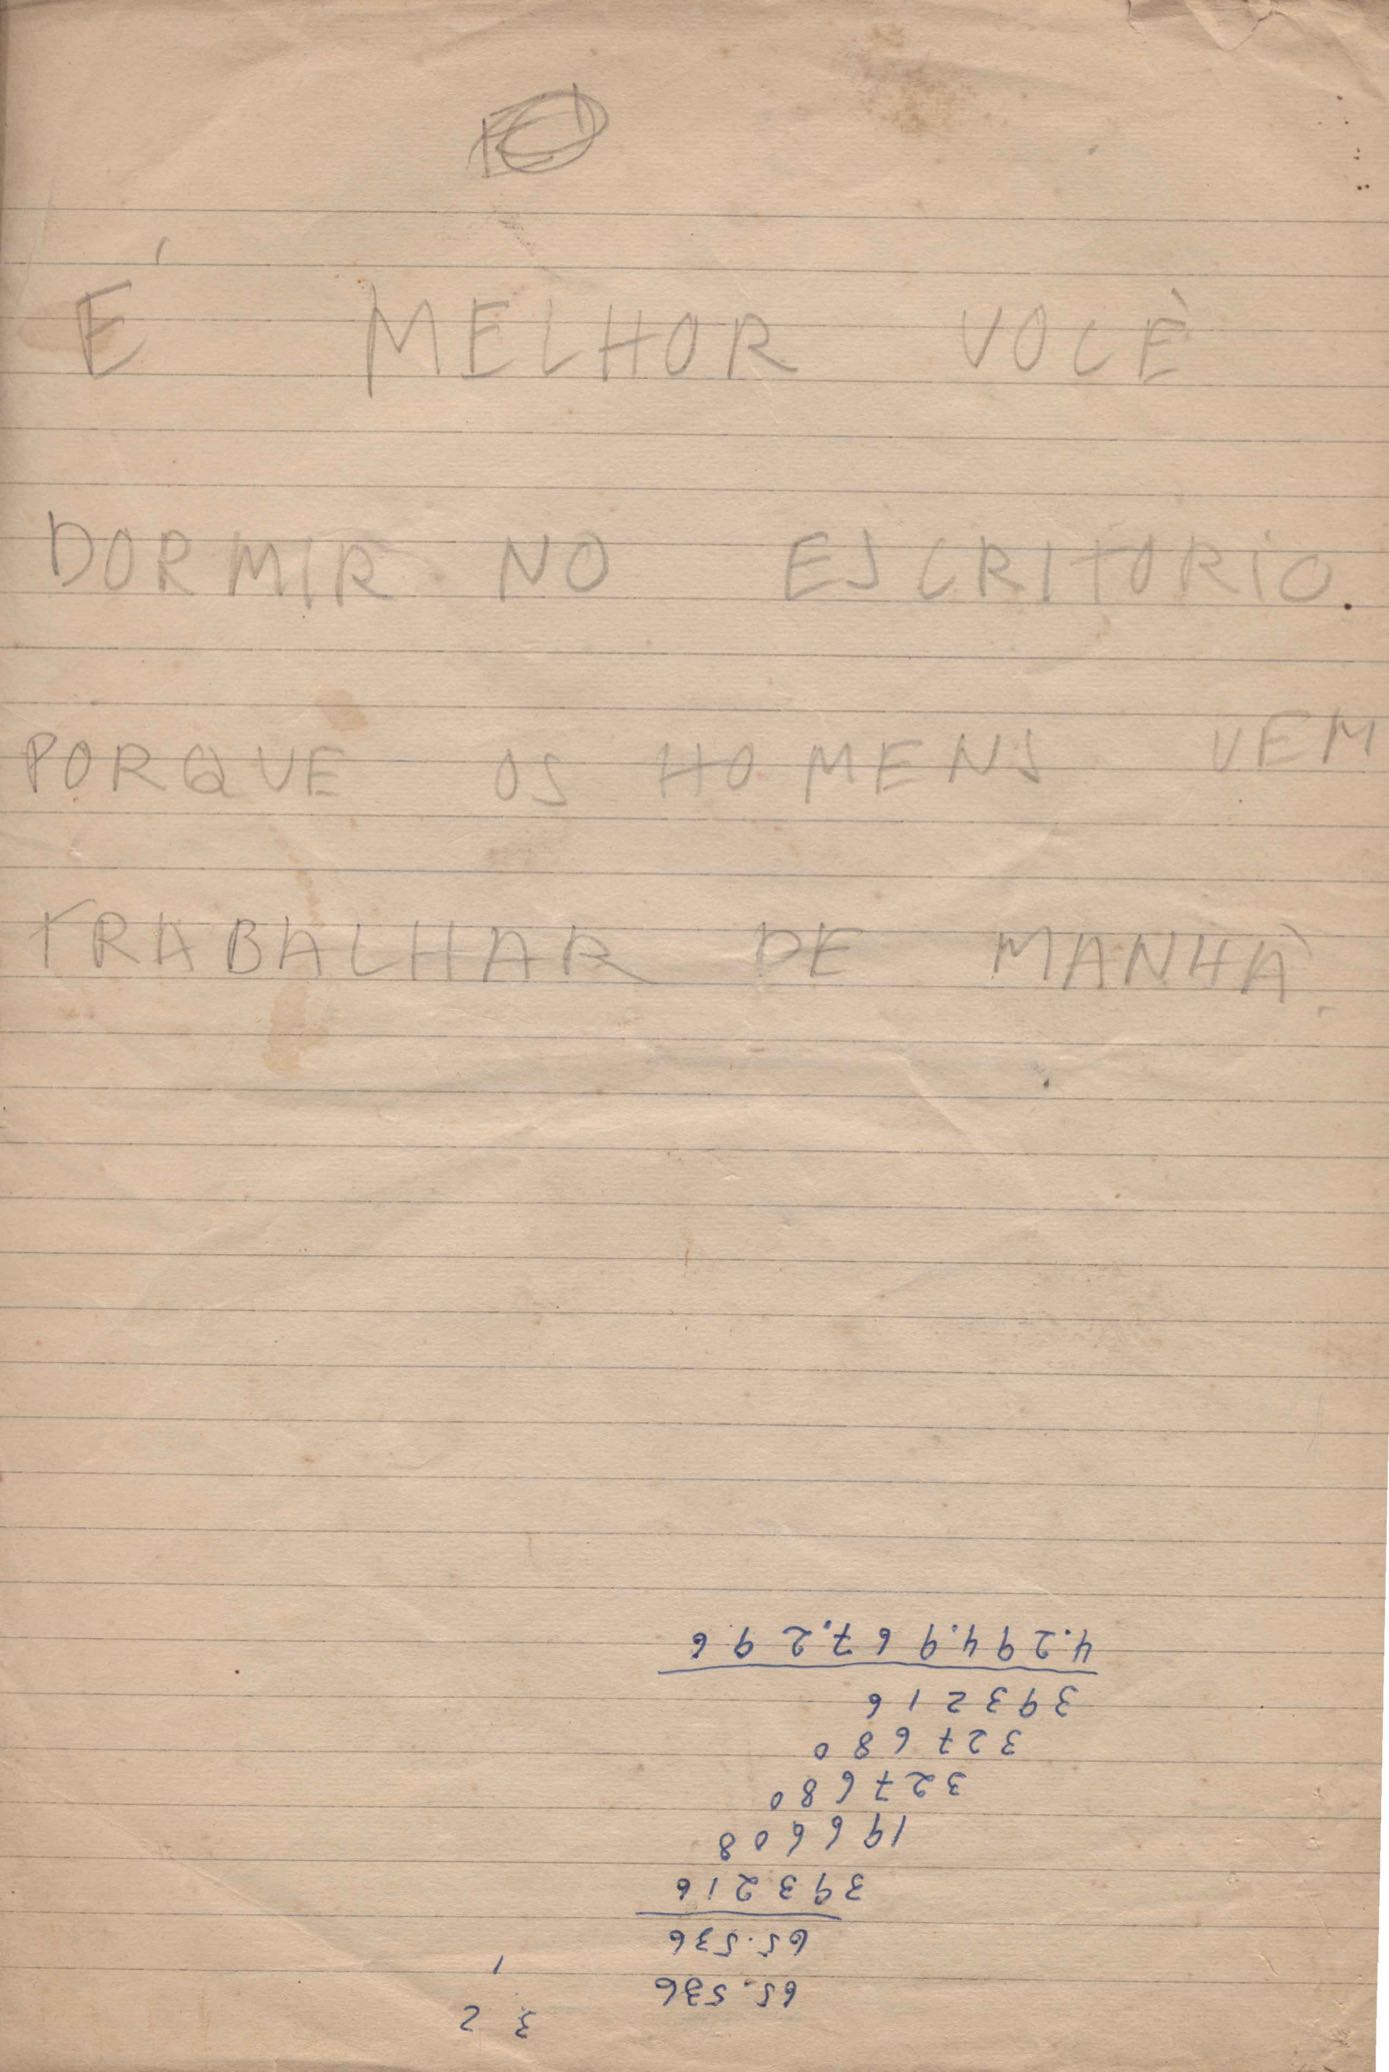 É MELHOR VOCÈ
DORMIR NO ESCRITORIO.
PORQUE OS HOMENS VEM
TRABALHAR DE MANHÃ.
3 2
1
65.536
65.536
393216
196608
327680
327680
393216
4.294.967.296